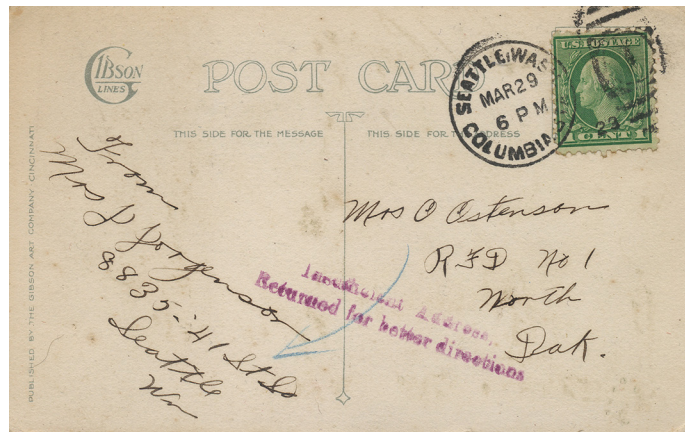 GIBSON
LINES
POST CARD
SEATTLE, WASH.
MAR 29
6 PM
COLUMBIA
U.S. POSTAGE
THIS SIDE FOR THE MESSAGE
THIS SIDE FOR THE ADDRESS
PUBLISHED BY THE GIBSON ART COMPANY, CINCINNATI
From
Mrs J Jorgenson
8835-41 St So
Seattle
Wn
Mrs O Ostenson
RFD No 1
North
Dak.
Insufficient Address,
Returned for better directions